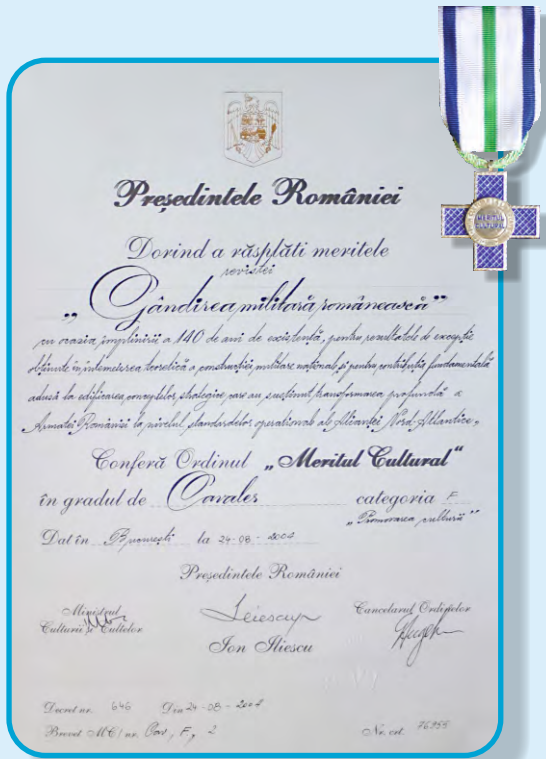 MERITUL
CULTURAL
Președintele României
Dorind a răsplăti meritele
revistei
„Gândirea militară românească”
cu ocazia împlinirii a 140 de ani de existență, pentru rezultatele de excepție
obținute în întemeierea teoretică a construcției militare naționale și pentru contribuția fundamentală
adusă la edificarea conceptelor strategice care au susținut transformarea profundă a
Armatei României la nivelul standardelor operaționale ale Alianței Nord-Atlantice,
Conferă Ordinul „Meritul Cultural“
în gradul de Cavaler categoria F
„Promovarea culturii”
Dat în București la 24-08-2004
Președintele României
Ministrul Culturii și Cultelor
Cancelarul Ordinelor
Ion Iliescu
Decret nr. 646 Din 24-08-2004
Brevet MC/ nr. Cav, F, 2 Nr. crt. 76955